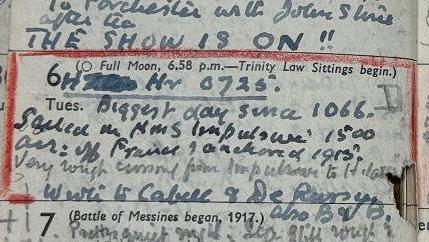 To Porchester with John S
after the
THE SHOW IS ON !!
6 (○ Full Moon, 6.58 p.m.—Trinity Law Sittings begin.)
Hr 0725.
Tues. Biggest day since 1066.
Sailed in HMS Impulsive 1500
arr: off France & anchored 1915.
Very rough crossing from Impulsive to
Wrote to Cabell & De
also B & B.
7 (Battle of Messines began, 1917.)
quiet night. still rough